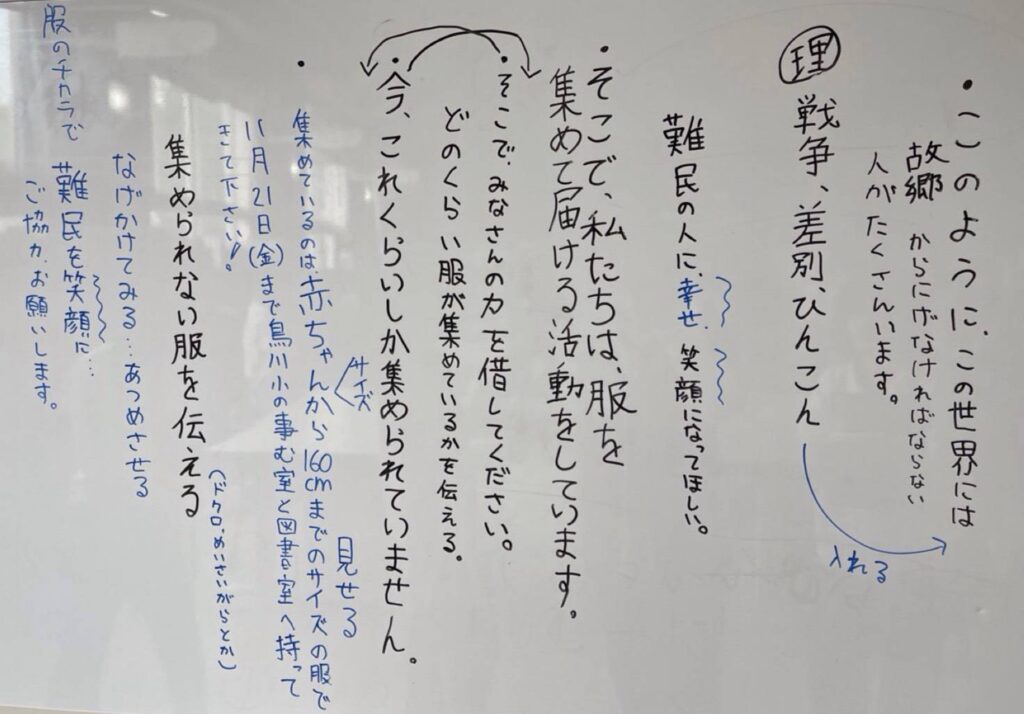 ・このように、この世界には
故郷からにげなければならない
人がたくさんいます。
理 戦争、差別、ひんこん
入れる
難民の人に、幸せ、笑顔になってほしい。
・そこで、私たちは、服を
集めて届ける活動をしています。
・そこで、みなさんの力を借してください。
どのくらい服が集めているかを伝える。
・今、これくらいしか集められていません。
サイズ
見せる
・集めているのは、赤ちゃんから160cmまでのサイズの服で
11月21日(金)まで鳥川小の事む室と図書室へ持って
きて下さい!
集められない服を伝える
(ドクロ、めいさいがらとか)
なげかけてみる…あつめさせる
服のチカラで 難民を笑顔に…
ご協力、お願いします。